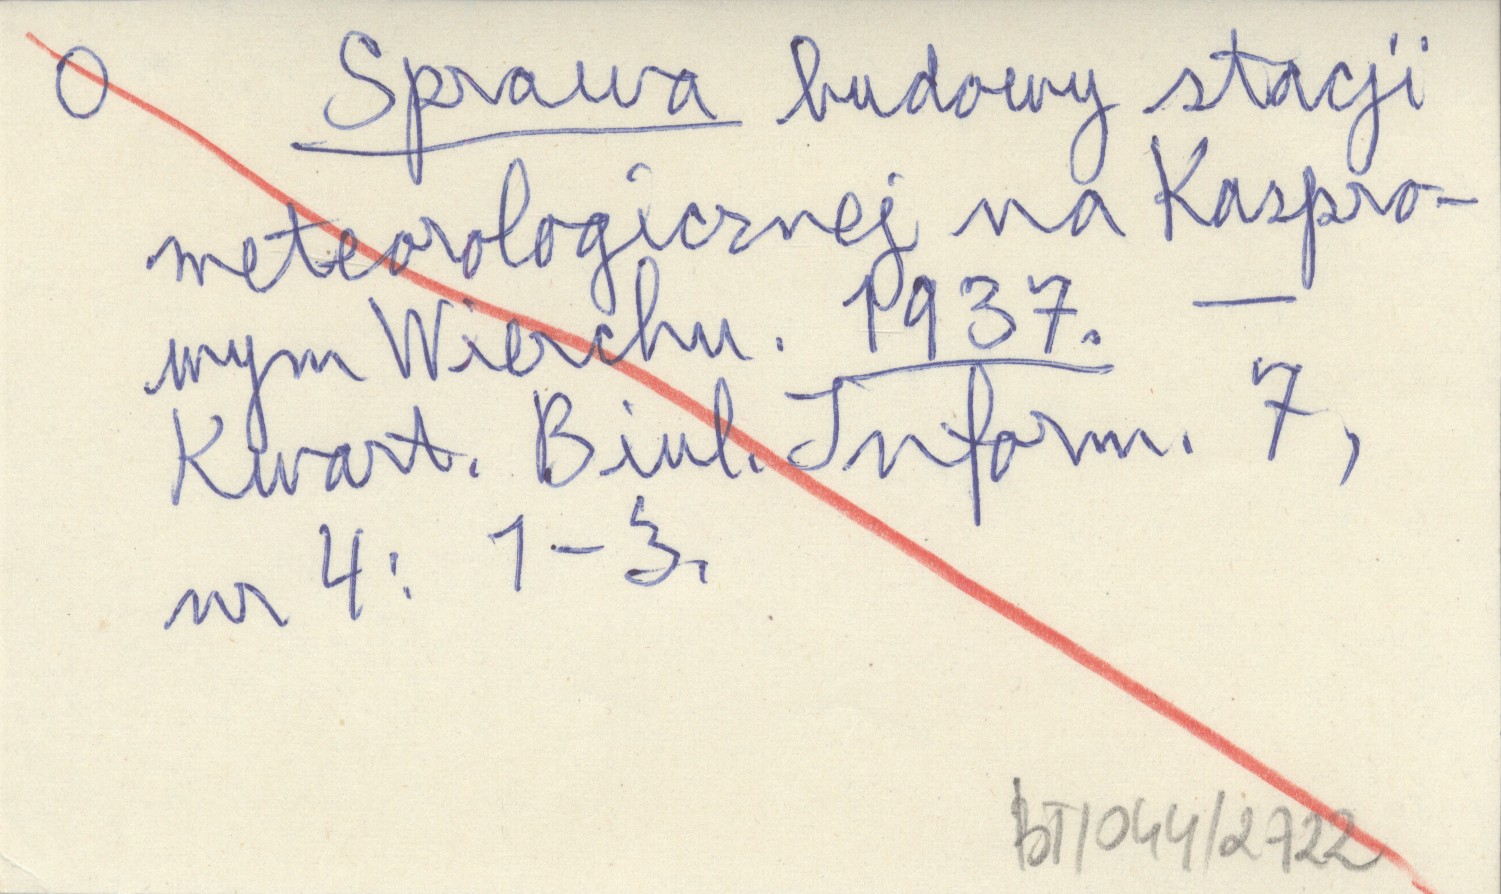 O Sprawa budowy stacji
meteorologicznej na Kaspro-
wym Wierchu. 1937. —
Kwart. Biul. Inform. 7,
nr 4: 1-3.
BT/044/2722